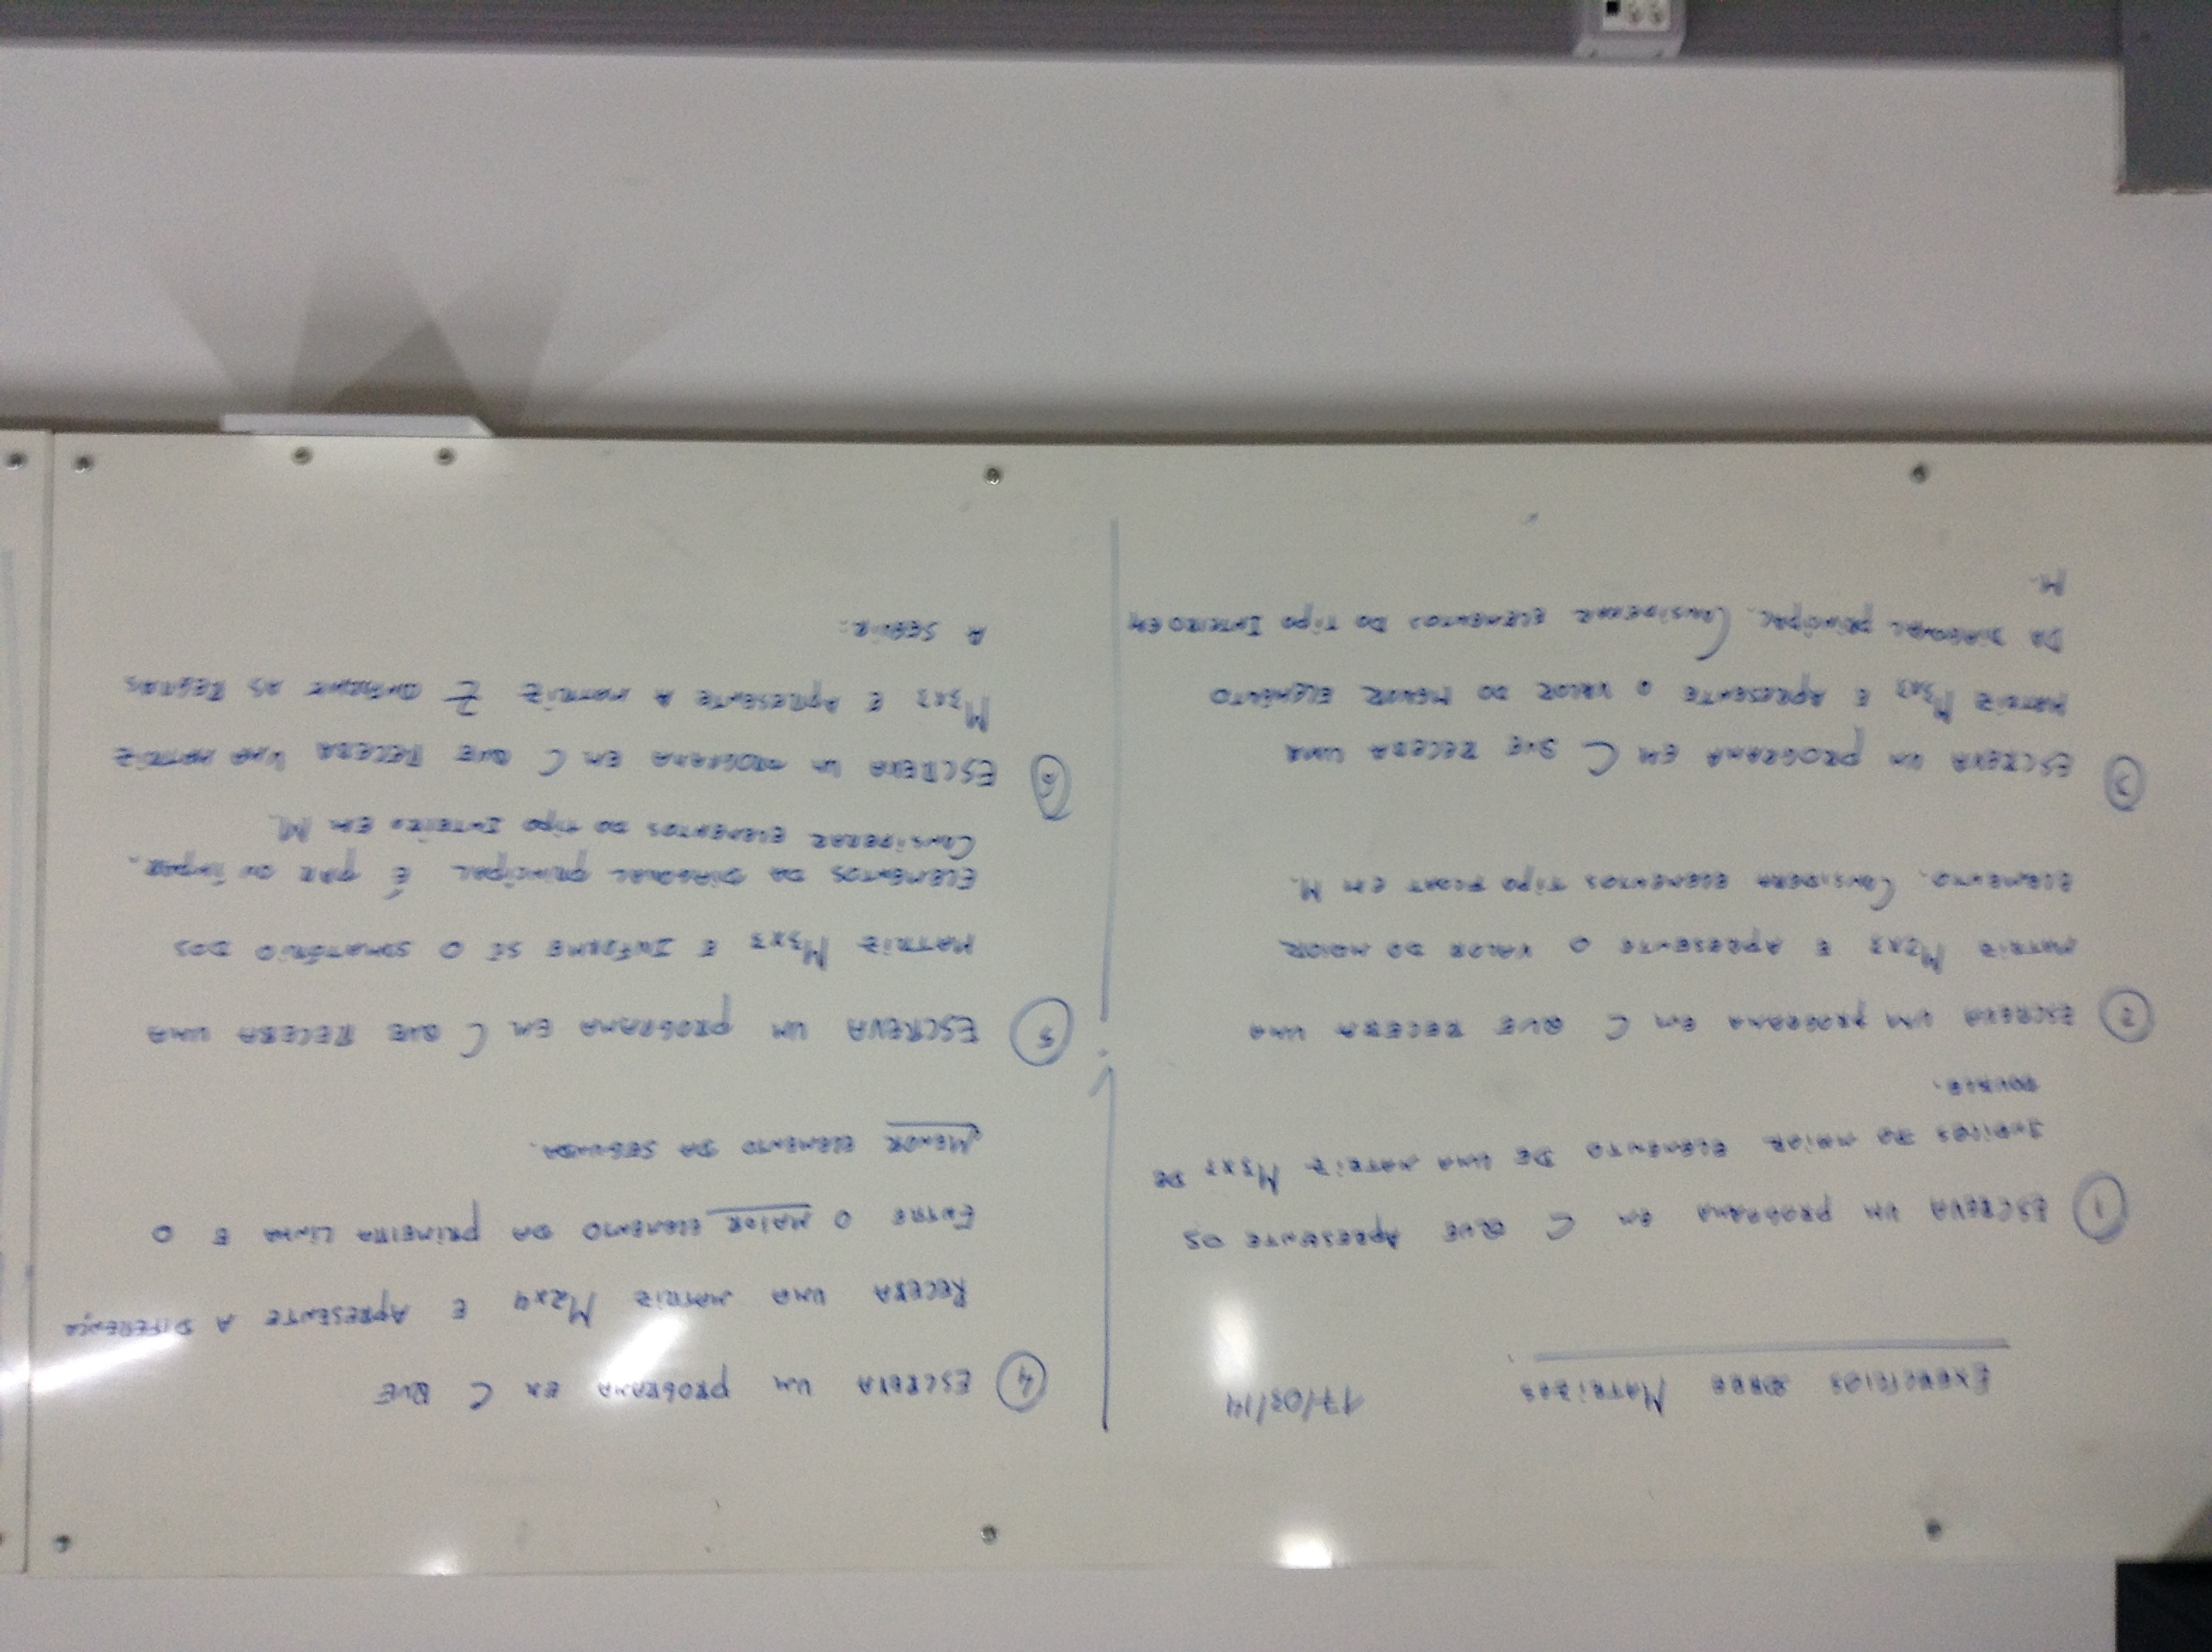 Exercícios sobre Matrizes
17/03/14
1 ESCREVA UM PROGRAMA EM C QUE APRESENTE OS
ÍNDICES DO MAIOR ELEMENTO DE UMA MATRIZ M3x3 DE
DOUBLE.
2 ESCREVA UM PROGRAMA EM C QUE RECEBA UMA
MATRIZ M2x3 E APRESENTE O VALOR DO MAIOR
ELEMENTO. CONSIDERA ELEMENTOS TIPO FLOAT EM M.
3 ESCREVA UM PROGRAMA EM C QUE RECEBA UMA
MATRIZ M3x3 E APRESENTE O VALOR DO MENOR ELEMENTO
DA DIAGONAL PRINCIPAL. CONSIDERAR ELEMENTOS DO TIPO INTEIRO EM
M.
4 ESCREVA UM PROGRAMA EM C QUE
RECEBA UMA MATRIZ M2x4 E APRESENTE A DIFERENÇA
ENTRE O MAIOR ELEMENTO DA PRIMEIRA LINHA E O
MENOR ELEMENTO DA SEGUNDA.
5 ESCREVA UM PROGRAMA EM C QUE RECEBA UMA
MATRIZ M3x3 E INFORME SE O SOMATÓRIO DOS
ELEMENTOS DA DIAGONAL PRINCIPAL É PAR OU ÍMPAR.
CONSIDERAR ELEMENTOS DO TIPO INTEIRO EM M.
6 ESCREVA UM PROGRAMA EM C QUE RECEBA UMA MATRIZ
M3x3 E APRESENTE A MATRIZ Z CONFORME AS REGRAS
A SEGUIR: